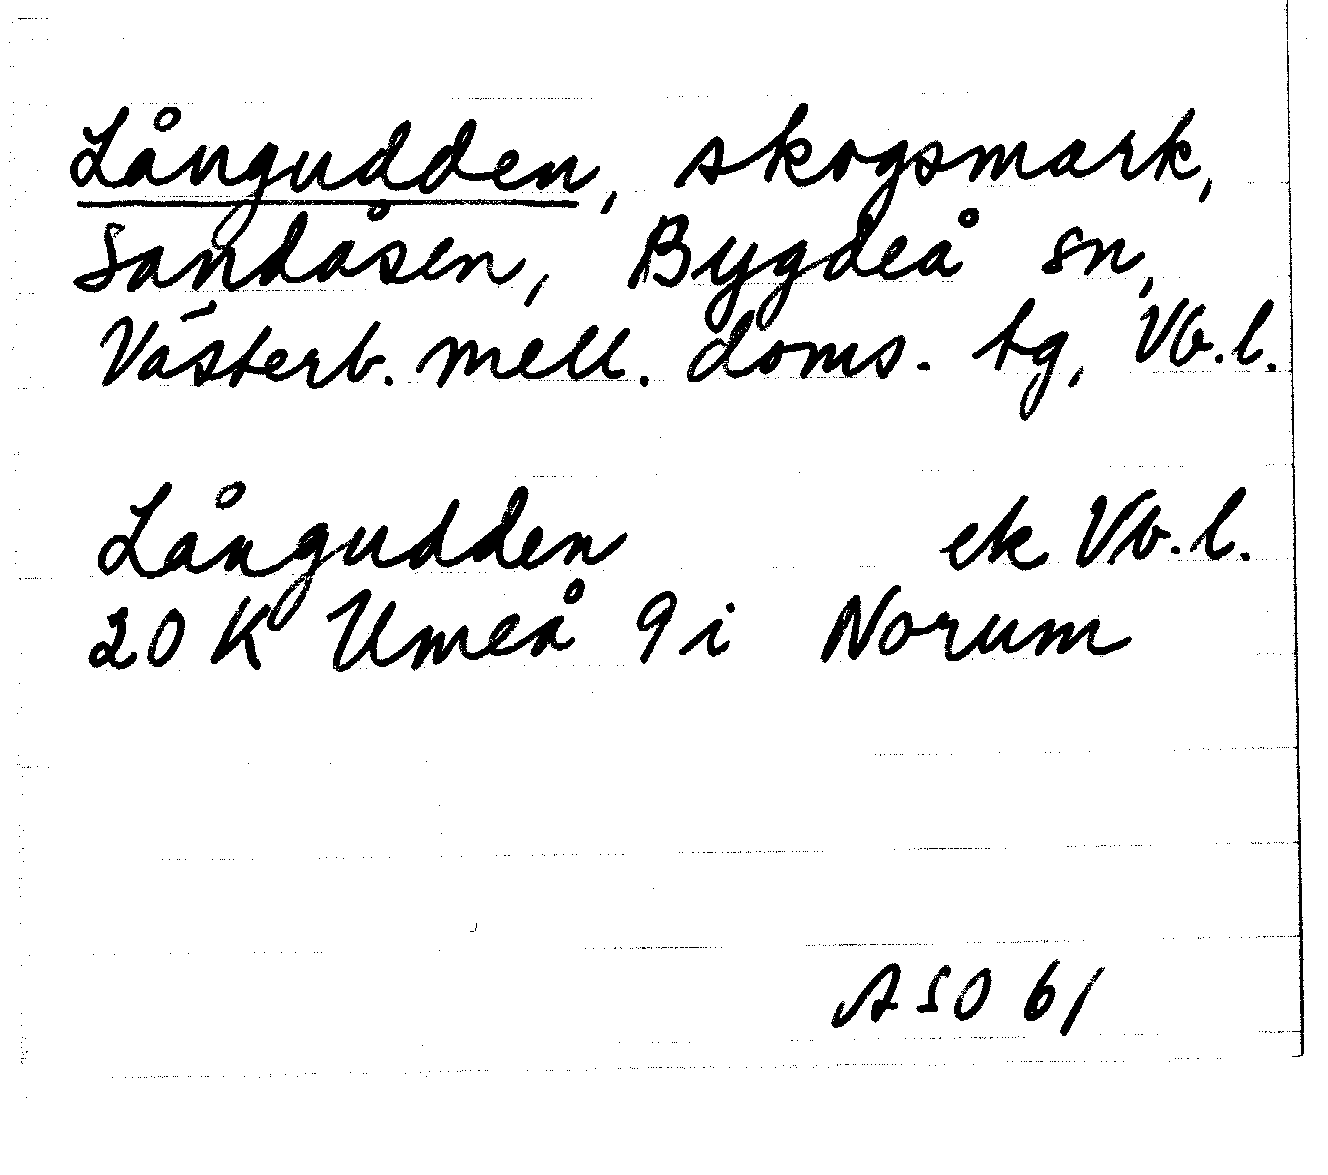 Långudden, skogsmark,
Sandåsen, Bygdeå sn,
Västerb. mell. doms. tg, Vb.l.
Långudden ek Vb.l.
20 K Umeå 9i Norum
ASO 61